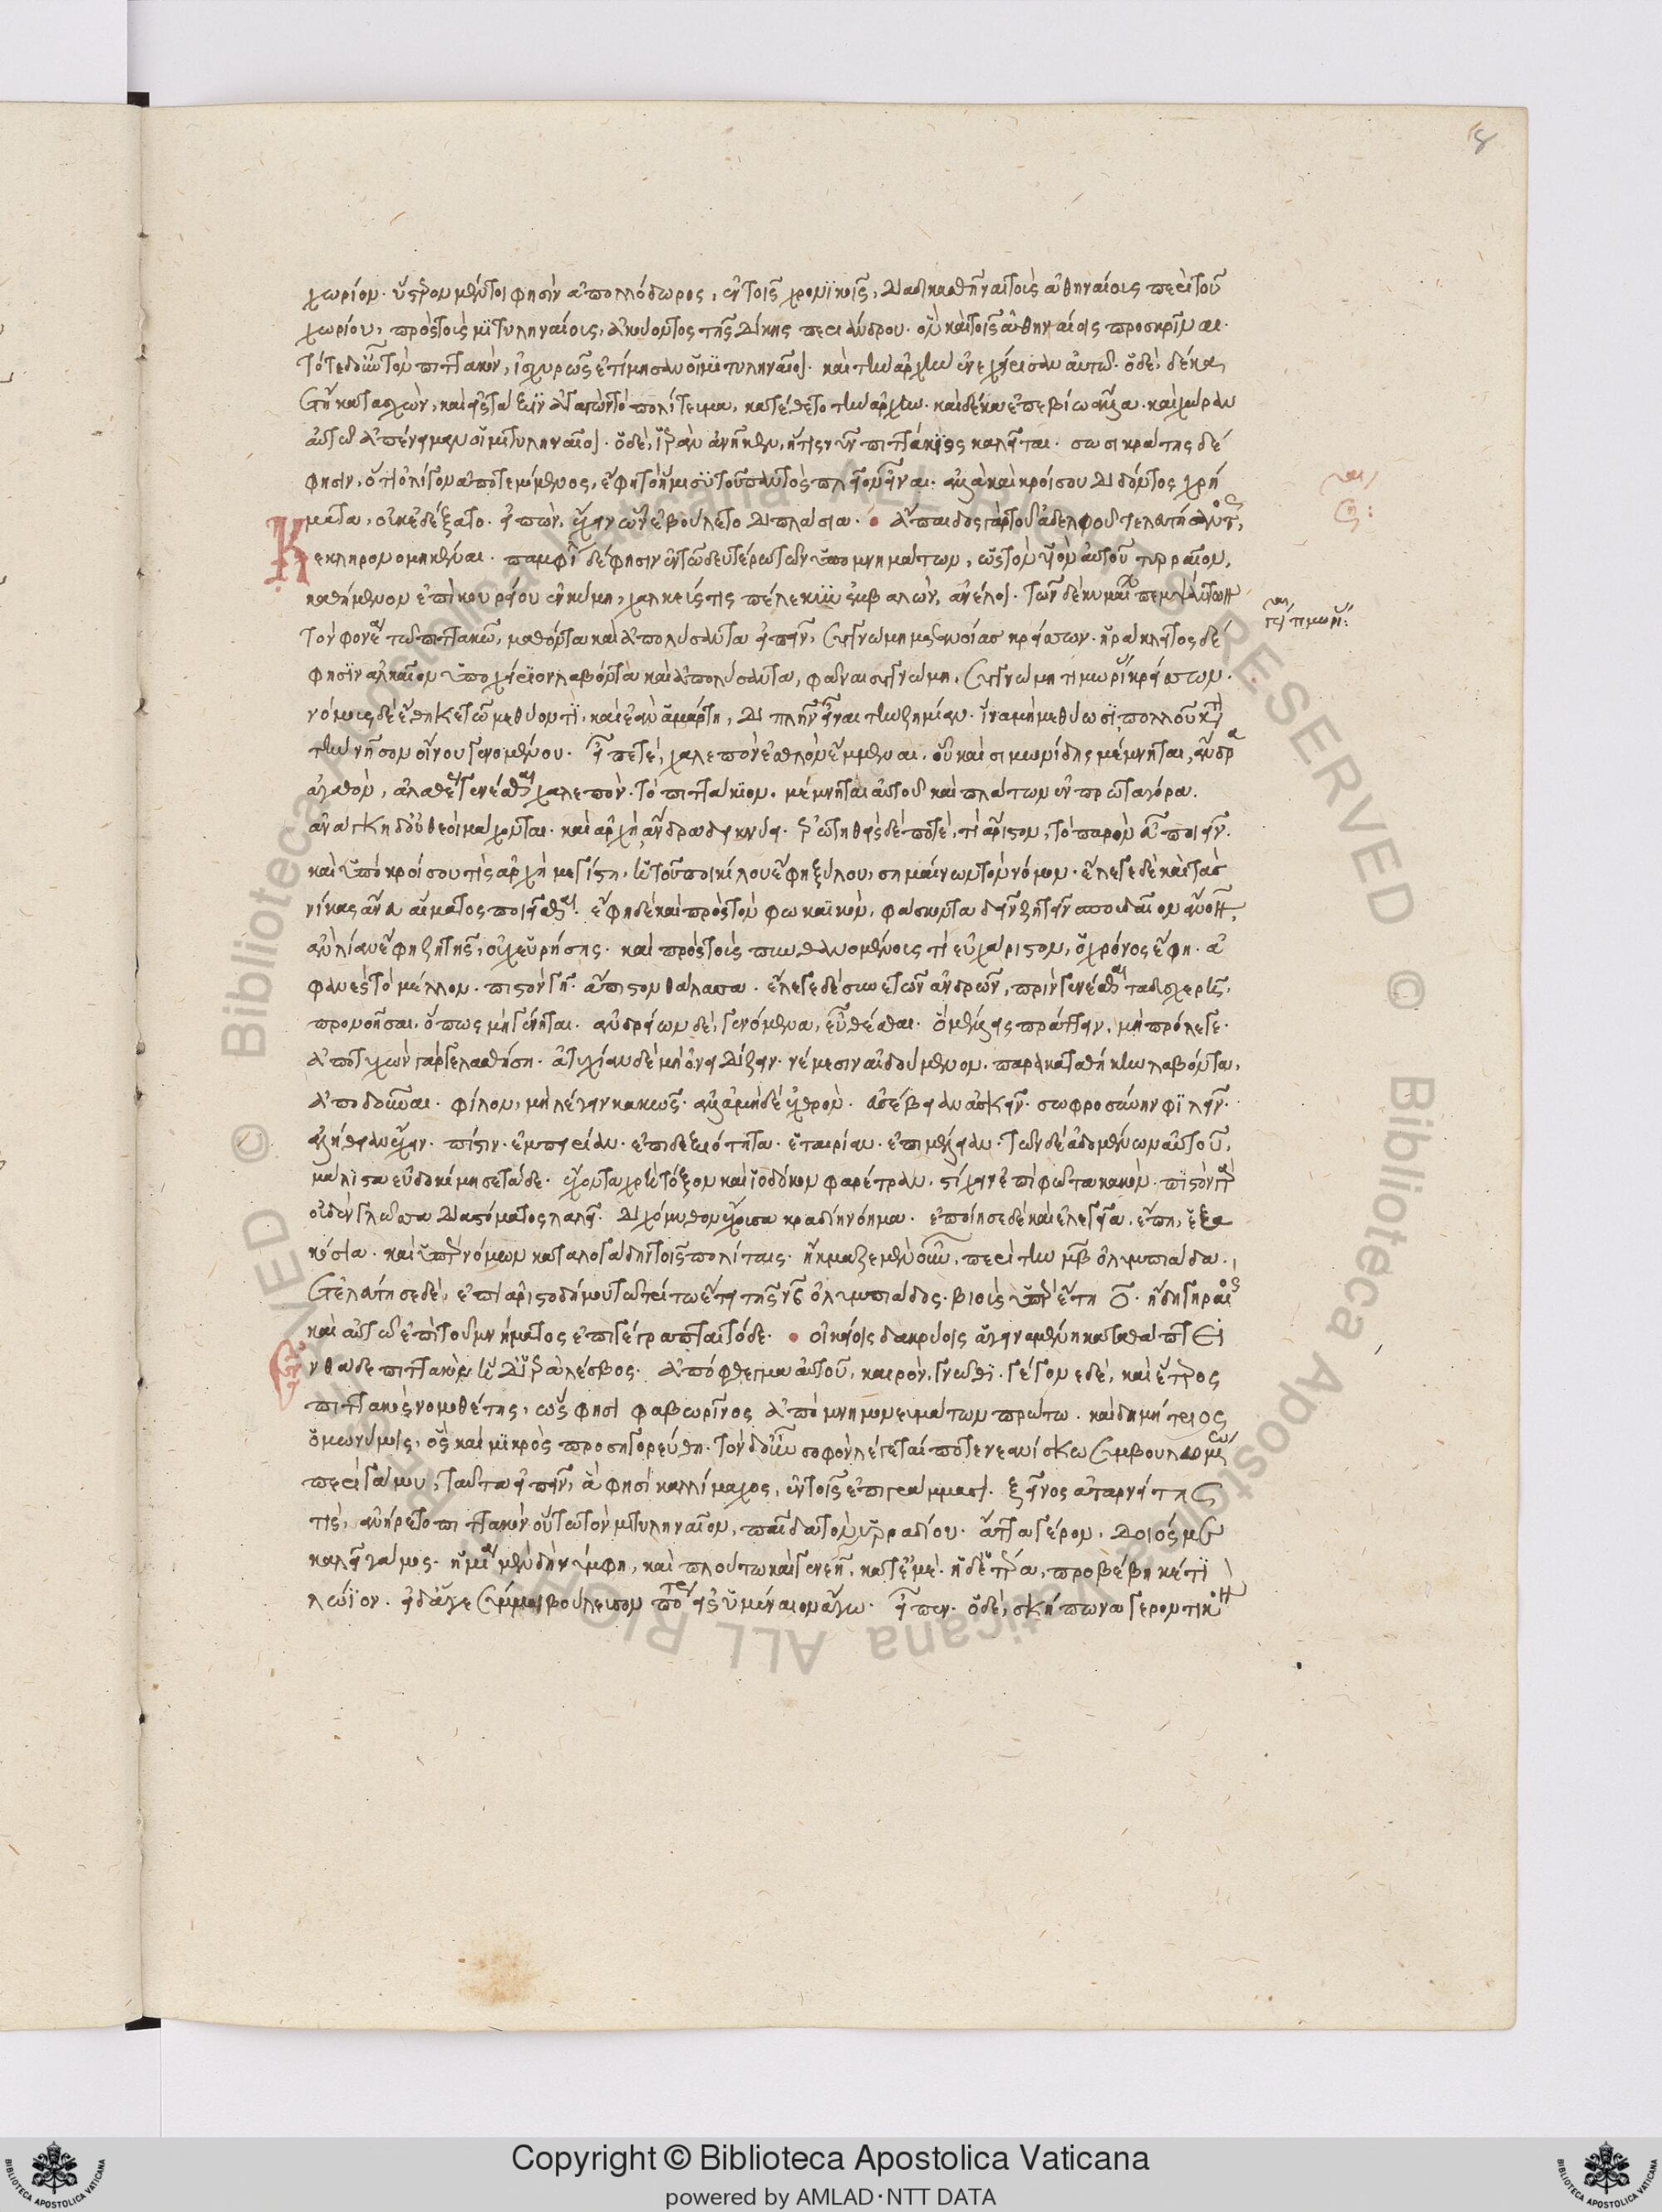 8
χωρίον. ὕστερον μέντοι φησὶν ἀπολλόδωρος, ἐν τοῖς χρονικοῖς, διαδικασθῆναι τοὺς ἀθηναίους περὶ τοῦ
χωρίου, πρὸς τοὺς μιτυληναίους, ἀκούοντος τῆς δίκης περιάνδρου. ὃν καὶ τοῖς ἀθηναίοις προσκρῖναι.
τότε δ' οὖν τὸν πιττακὸν, ἰσχυρῶς ἐτίμησαν οἱ μιτυληναῖοι. καὶ τὴν ἀρχὴν ἐνεχείρισαν αὐτῶ. ὁ δὲ, δέκα
ἔτη κατασχὼν, καὶ εἰς τάξιν ἀγαγὼν τὸ πολίτευμα, κατέθετο τὴν ἀρχήν. καὶ δέκα ἐπεβίω ἄλλα. καὶ χώραν
αὐτῶ ἀπένειμαν οἱ μιτυληναῖοι. ὁ δὲ, ἱερὰν ἀνῆκεν, ἥτις νῦν πιττάκειος καλεῖται. σωσικράτης δέ
φησιν, ὅτι ὀλίγον ἀποτεμόμενος, ἔφη τὸ ἥμισυ τοῦ παντὸς πλεῖον εἶναι. ἀλλὰ καὶ κροίσου διδόντος χρή
ματα, οὐκ ἐδέξατο. εἰπὼν, ἔχειν ὧν ἐβούλετο διπλάσια. ἄπαιδος γὰρ τοῦ ἀδελφοῦ τελευτήσαντος,
κεκληρονομηκέναι. παμφίλη δέ φησιν ἐν τῶ δευτέρω τῶν ὑπομνημάτων, ὡς τὸν υἱὸν αὐτοῦ τυρραῖον,
καθήμενον ἐπὶ κουρείου ἐν κύμη, χαλκεύς τις πέλεκυν ἐμβαλὼν, ἀνέλοι. τῶν δὲ κυμαίων πεμψάντων
τὸν φονέα τῶ πιττακῶ, μαθόντα καὶ ἀπολύσαντα εἰπεῖν, συγνώμη μετανοίας κρείσσων. ἡράκλειτος δέ
φησιν ἀλκαῖον ὑποχείριον λαβόντα καὶ ἀπολύσαντα, φάναι συγνώμη, συγνώμη τιμωρίας κρείσσων.
νόμους δὲ ἔθηκε τῶ μεθύοντι, καὶ ἐὰν ἁμάρτη, διπλῆν εἶναι τὴν ζημίαν. ἵνα μὴ μεθύωσι πολλοῦ κατὰ
τὴν νῆσον οἴνου γενομένου. εἶπέ τε, χαλεπὸν ἐσθλὸν ἔμμεναι. οὗ καὶ σιμωνίδης μέμνηται, ἄνδρα
ἀγαθὸν, ἀλαθέως γενέσθαι χαλεπὸν. τὸ πιττάκιον. μέμνηται αὐτοῦ καὶ πλάτων ἐν πρωταγόρα.
ἀνάγκη δ' οὐ θεοὶ μάχονται. καὶ ἀρχὴ ἄνδρα δεικνύει. ἐρωτηθεὶς δέ ποτε, τί ἄριστον, τὸ παρὸν εὖ ποιεῖν.
καὶ ὑπὸ κροίσου τίς ἀρχὴ μεγίστη, ἡ τοῦ ποικίλου ἔφη ξύλου, σημαίνων τὸν νόμον. ἔλεγε δὲ καὶ τὰς
νίκας ἄνευ αἵματος ποιεῖσθαι. ἔφη δὲ καὶ πρὸς τὸν φωκαϊκὸν, φάσκοντα δεῖν ζητεῖν σπουδαῖον ἄνθρωπον,
ἂν λίαν ἔφη ζητῆς, οὐχ εὑρήσεις. καὶ πρὸς τοὺς πυνθανομένους τί εὐχάριστον, ὁ χρόνος ἔφη. ἀ
φανὲς τὸ μέλλον. πιστὸν γῆ. ἄπιστον θάλασσα. ἔλεγε δὲ συνετῶν ἀνδρῶν, πρὶν γενέσθαι τὰ δυσχερῆ,
προνοῆσαι, ὅπως μὴ γένηται. ἀνδρείων δὲ, γενόμενα, εὖ θέσθαι. ὃ μέλλεις πράττειν, μὴ πρόλεγε.
ἀποτυχὼν γὰρ γελασθήση. ἀτυχίαν δὲ μὴ ὀνειδίζειν. νέμεσιν αἰδούμενον. παρακαταθήκην λαβόντα,
ἀποδοῦναι. φίλον, μὴ λέγειν κακῶς. ἀλλὰ μηδὲ ἐχθρόν. εὐσέβειαν ἀσκεῖν. σωφροσύνην φιλεῖν.
ἀλήθειαν ἔχειν. πίστιν. ἐμπειρίαν. ἐπιδεξιότητα. ἑταιρίαν. ἐπιμέλειαν. τῶν δὲ ἀδομένων αὐτοῦ,
μάλιστα εὐδοκίμησε τάδε. ἔχοντα χρὴ τόξον καὶ ἰοδόκον φαρέτραν, στίχειν ἐπὶ φῶτα κακόν. πιστὸν γὰρ
οὐδὲν γλῶσσα διὰ στόματος λαλεῖ. διχόμυθον ἔχουσα κραδίη νόημα. ἐποίησε δὲ καὶ ἐλεγεῖα, ἔπη, ἑξα
κόσια. καὶ ὑπὲρ νόμων καταλογάδην τοῖς πολίταις. ἤκμαζε μὲν οὖν, περὶ τὴν μβ ὀλυμπιάδα.
ἐτελεύτησε δὲ, ἐπὶ ἀριστομένους τῶ τρίτω ἔτει τῆς νβ ὀλυμπιάδος. βιοὺς ὑπὲρ ἔτη ο. ἤδη γηραιὸς
καὶ αὐτῶ ἐπὶ τοῦ μνήματος ἐπιγέγραπται τόδε. οἰκείοις δακρύοις ἁ γειναμένη κατάθαπτ' ἐ
νθάδε πιττακὸν ἡ δ' ἱερὰ λέσβος. ἀπόφθεγμα αὐτοῦ, καιρὸν γνῶθι. γέγονε δὲ, καὶ ἕτερος
πιττακὸς νομοθέτης, ὥς φησι φαβωρῖνος ἀπομνημονευμάτων πρώτω. καὶ δημήτριος
ὁμωνύμοις, ὃς καὶ μικρὸς προσηγορεύθη. τὸν δ' οὖν σοφὸν λέγεταί ποτε νεανίσκω συμβουλευομένω
περὶ γάμου, ταῦτα εἰπεῖν, ἅ φησι καλλίμαχος, ἐν τοῖς ἐπιγράμμασι. ξεῖνος ἀταρνείτης
τις, ἀνήρετο πιττακὸν οὕτω τὸν μιτυληναῖον, παῖδα τὸν ὑρραδίου. ἄττα γέρον, δοιός με
καλεῖ γάμος. ἡ μία μὲν δὴ νύμφη, καὶ πλούτω καὶ γενεῆ, κατ' ἐμέ. ἡ δ' ἑτέρα, προβέβηκε. τί
λώϊον. εἰ δ' ἄγε σύμμοι βούλευσον ποτέρην εἰς ὑμέναιον ἄγω. εἶπεν. ὁ δὲ, σκήπωνα γεροντικὸν
Copyright © Biblioteca Apostolica Vaticana
powered by AMLAD·NTT DATA